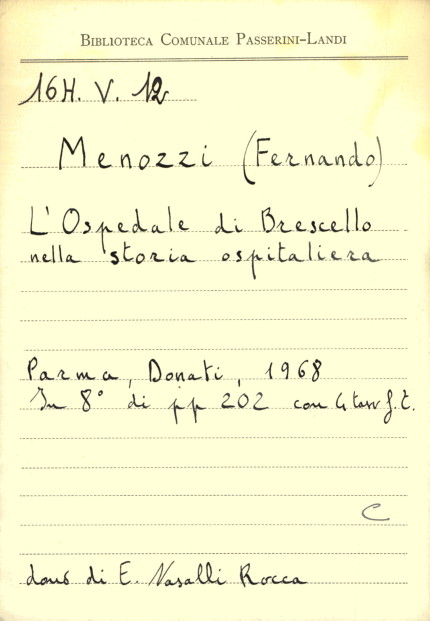 BIBLIOTECA COMUNALE PASSERINI-LANDI
16H. V. 12
Menozzi (Fernando)
L'Ospedale di Brescello
nella storia ospitaliera
Parma, Donati, 1968
In 8° di pp 202 con 4 tavv f.t.
C
dono di E. Nasalli Rocca